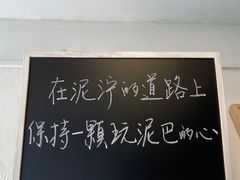 在泥泞的道路上
保持一颗玩泥巴的心